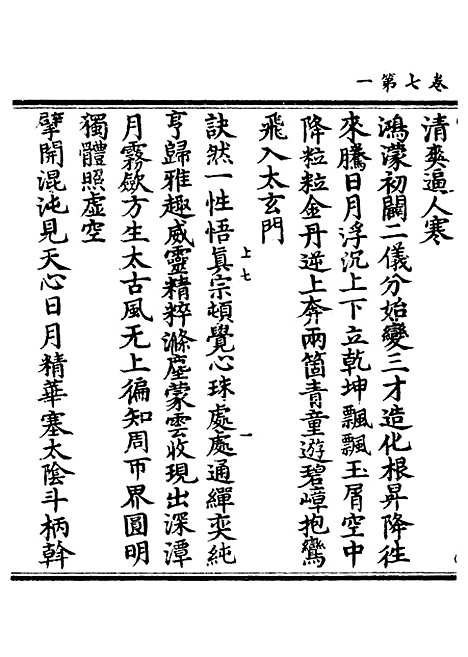 卷七第一
清爽逼人寒
鴻濛初闢二儀分始變三才造化根昇降徃
來騰日月浮沉上下立乾坤飄飄玉屑空中
降粒粒金丹逆上奔兩箇青童遊碧嶂抱鸞
飛入太玄門
上七
一
訣然一性悟眞宗頓覺心珠處處通繟奕純
亨歸雅趣威靈精粹滌塵蒙雲收現出深潭
月霧斂方生太古風无上徧知周帀界圓明
獨體照虛空
擘開混沌見天心日月精華塞太陰斗柄斡